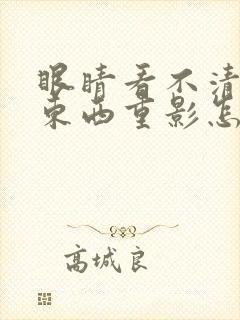 眼睛看不清
东西重影怎
高城良